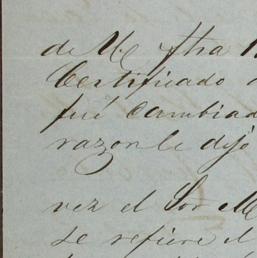 de M
Certificado
fué Cambiad
razon le dijo
vez el Sor M
se refiere el